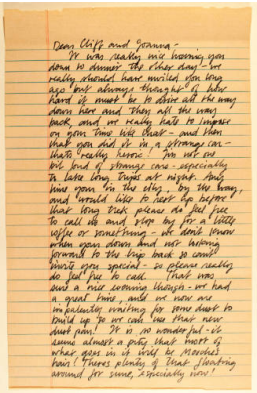 Dear Cliff and Joanna -
It was really nice having you
down to dinner the other day - we
really should have invited you long
ago but always thought of how
hard it must be to drive all the way
down here and then all the way
back and we really hate to impose
on your time like that - and then
that you did it in a strange car -
thats really heroic! I'm not one
bit fond of strange cars - especially
to take long trips at night. Any
time your in the city, by the way,
and would like to rest up before
that long trek please do feel free
to call us and stop by for a little
coffee or something - we don't know
when your down and not looking
forward to the trip back to
invite you special - so please really
do feel free to call. That was
sure a nice evening though - we had
a great time, and we now are
impatiently waiting for some dust to
build up so we can use that new
dust pan! It is so wonderful - it
seems almost a pity that most of
what goes in it will be
hair! Theres plenty of that floating
around for sure, especially now!